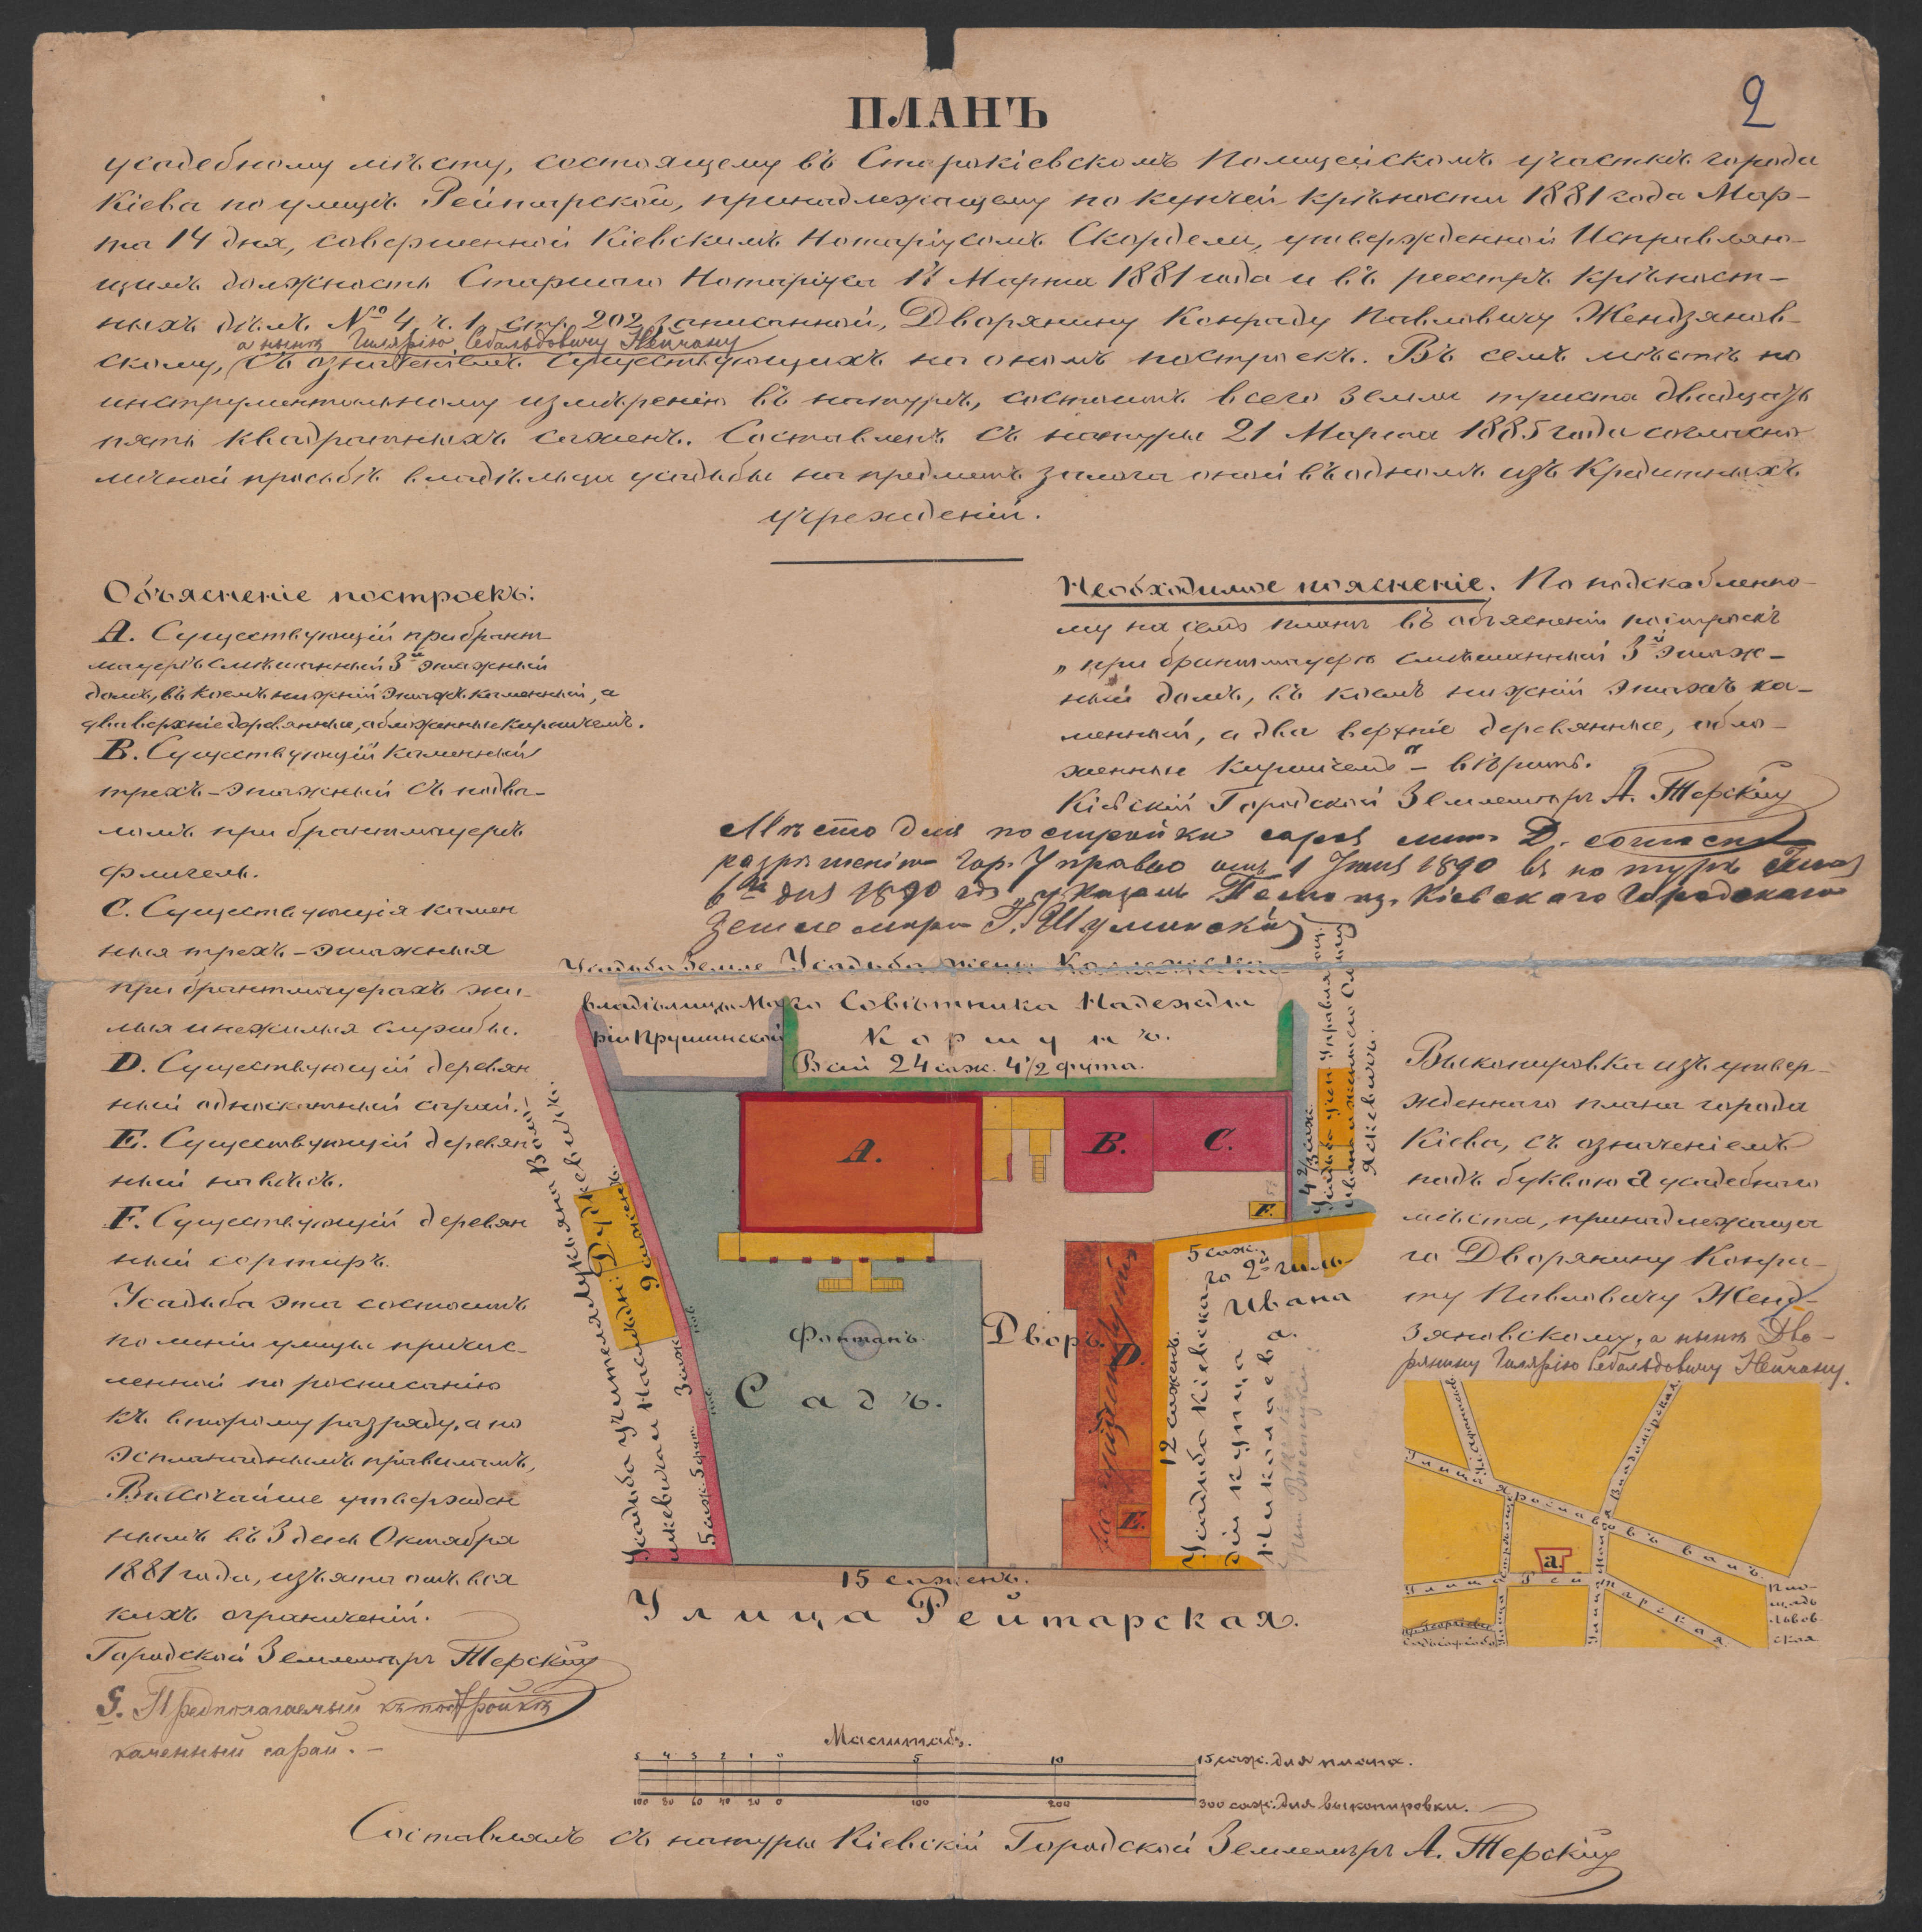 2
ПЛАНЪ
усадебному мѣсту, состоящему въ Старокіевскомъ Полицейскомъ участкѣ города
Кіева по улицѣ Рейтарской, принадлежащему по купчей крѣпости 1881 года Мар-
та 14 дня, совершенной Кіевскимъ Нотаріусомъ Скордели, утвержденной Исправляю-
щимъ должность Старшаго Нотаріуса Марта 1881 года и въ реестръ крѣпост-
ныхъ дѣлъ № 4 ч. 1 стр. 202 записанной, Дворянину Конраду Павловичу Жендзянов-
а нынѣ Гилярію Нейману
скому, съ означеніемъ существующихъ на ономъ построекъ. Въ семъ мѣстѣ по
инструментальному измѣренію въ натурѣ, состоитъ всего земли триста двадцать
пять квадратныхъ саженъ. Составленъ съ натуры 21 Марта 1885 года согласно
личной просьбѣ владѣльца усадьбы на предметъ залога оной въ одномъ изъ Кредитныхъ
учрежденій.
Объясненіе построекъ:
А. Существующій при брант
мауерѣ смѣшанный 3й этажный
домъ, въ коемъ нижній этажъ каменный, а
два верхніе деревянные, обложенные кирпичемъ.
В. Существующій каменный
трехъ-этажный съ подва-
ломъ при брантмауерѣ
флигель.
С. Существующія камен
ныя трехъ-этажныя
при брантмауерахъ жи-
лыя и нежилыя службы.
D. Существующій деревян
ный односкатный сарай.
Е. Существующій деревян
ный навѣсъ.
F. Существующій деревян
ный сортиръ.
Усадьба эта состоитъ
по линіи улицы причис-
ленной по росписанію
къ второму разряду, а по
эспланаднымъ правиламъ,
Высочайше утвержден
нымъ въ 3 день Октября
1881 года, изъята отъ вся
кихъ ограниченій.
Городской Землемѣръ Терскій
G. Предполагаемый къ постройкѣ
каменный сарай.-
Необходимое поясненіе. По подскабленно-
му на семъ планѣ въ объясненіи построекъ
„при брантмауерѣ смѣшанный 3й этаж-
ный домъ, въ коемъ нижній этажъ ка-
менный, а два верхніе деревянные, обло-
женные кирпичемъ" - вѣрить.
Кіевскій Городской Землемѣръ А. Терскій
Мѣсто для постройки сарая лит. D. согласно
разрѣшенію Гор. Управы отъ 1 1890 въ натурѣ
6го дня 1890 года указалъ Кіевскаго Городскаго
Землемѣра Г. Шуминскій
Усадьба Земле Усадьба жены Коллежска-
владѣлицы Ма го Совѣтника Надежды
ріи Прушинской Коршунъ.
Всей 24 саж. 4 1/2 фута.
4 2/3 саж.
9 саженъ.
3 саж.
5 саж. 6 фут.
А.
В.
С.
F.
D.
Е.
Фонтанъ.
Садъ.
Дворъ.
5 саж.
12 саженъ.
Усадьба Кіевска- го 2й гиль-
діи купца Ивана
Николаева.
15 саженъ.
Улица Рейтарская.
Выкопировка изъ утвер-
жденнаго плана города
Кіева, съ означеніемъ
подъ буквою а усадебнаго
мѣста, принадлежаща
го Дворянину Конра-
ту Павловичу Женд-
зяновскому, а нынѣ Дво-
рянину Гилярію Нейману.
Улица Ярославовъ валъ.
Владимірская
а.
Улица Рейтарская
Улица Стрѣлецкая
Пло-
щадь
Львов-
ская
Масштабъ.
5 4 3 2 1 0 5 10 15 саж. для плана.
100 80 60 40 20 0 100 200 300 саж. для выкопировки.
Составлялъ съ натуры Кіевскій Городской Землемѣръ А. Терскій